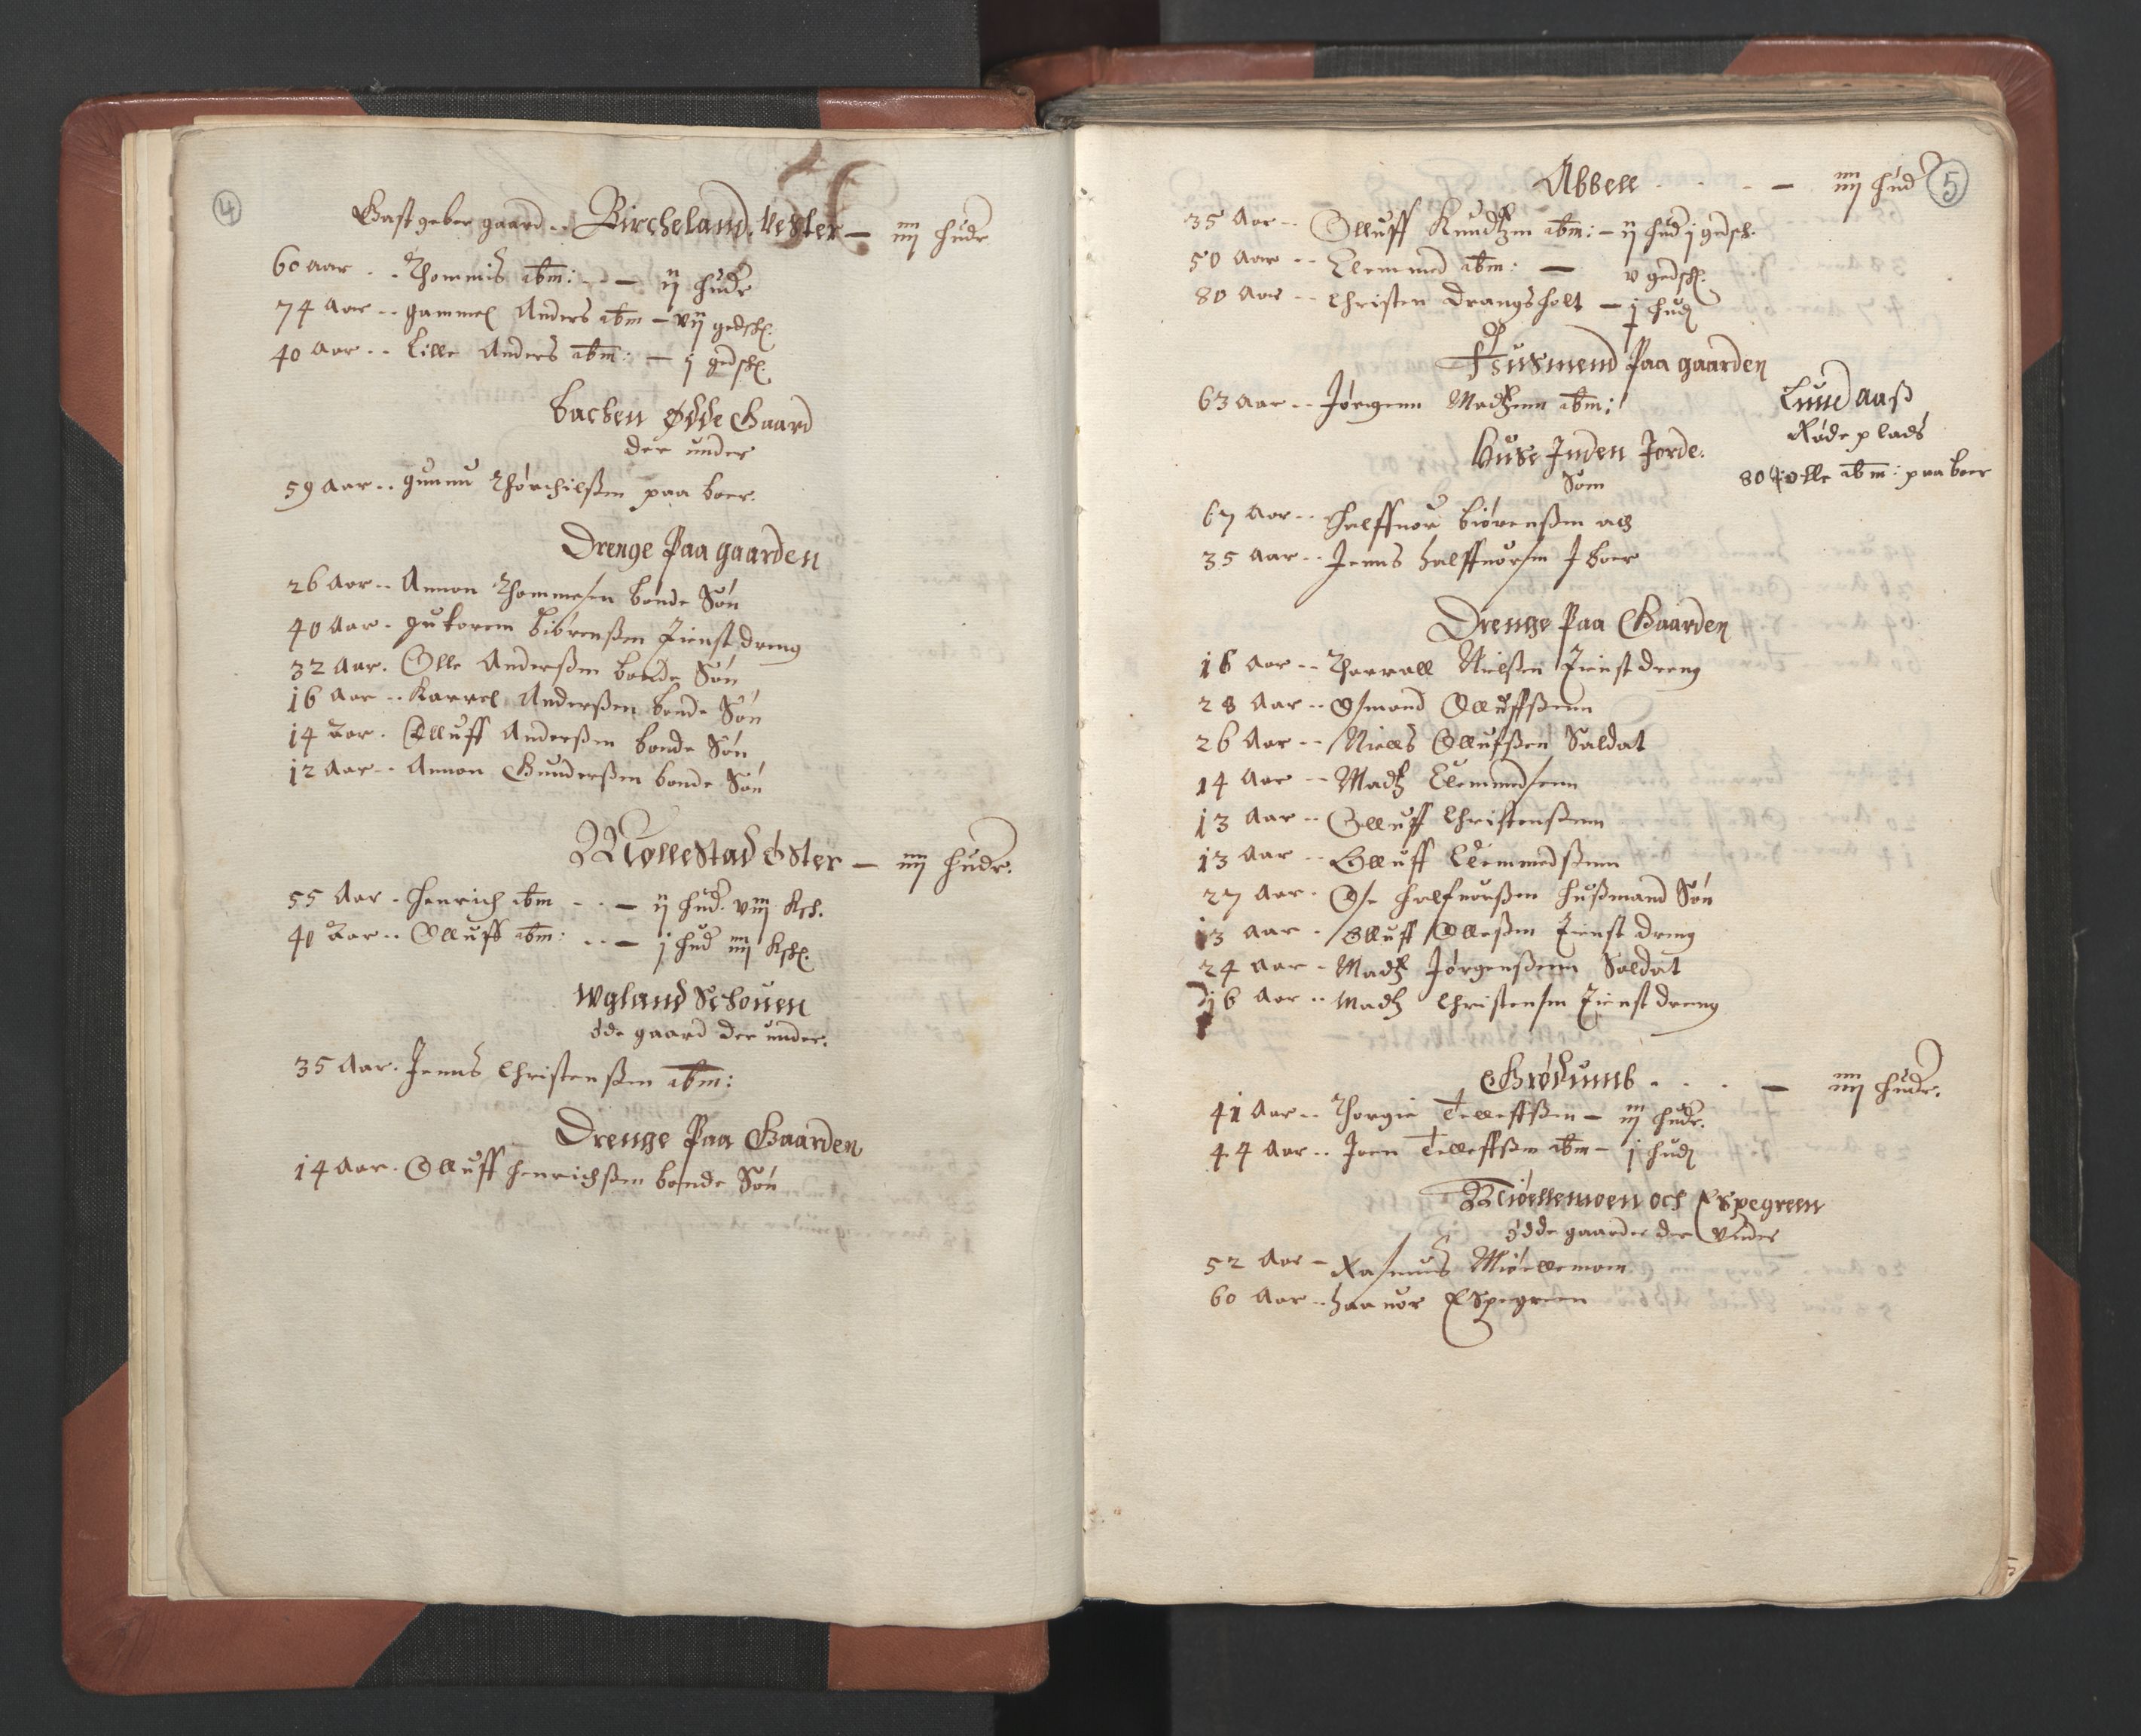 4
Gastgeber gaard .. Bircheland Vester — iiij hudr
60 aar .. Thommis ibm: — ij hudr
74 Aar .. gammel Anders ibm — vij gedsk.
40 Aar .. Lille Anders ibm: — j gedsk.
backen Ødde Gaard
der under
59 Aar .. gunnu Thorchilßen paa boer.
Drenge Paa gaarden
26 Aar .. Annon Thommesen bonde Søn
40 Aar . gutorem biørenßen Tienst dreng
32 Aar . Olle Anderßen bonde Søn
16 Aar .. Karrel Anderßen bonde Søn
14 Aar . Olluff Anderßen bonde Søn
12 Aar .. Annon Gunderßen bonde Søn
Møllestad Øster — iiij hudr.
55 Aar . Henrich ibm — ij hud. viij Ksk.
40 Aar .. Olluff ibm: .. — j hud iiij Ksk.
Wgland Schouen
øde gaard der under.
35 Aar . Jenns Christenßen ibm:
Drenge Paa Gaarden
14 Aar . Olluff Henrichßen bonde Søn
5
Abbell — iiij hud
35 Aar .. Olluff Knudtzen ibm: — ij hud j gedsk.
50 Aar .. Clemmed ibm: — v gedsk.
80 Aar .. Christen Drangsholt — j hud
Husmend Paa gaarden
63 aar .. Jørgenn Madtzenn ibm:
Lund aaß
Røde plads
80 olle ibm: paa boer
Huse Inden Jorde.
Som
67 Aar .. Halffuor biørenßen och
35 Aar .. Jenns Halffuorsen J boer
Drenge Paa Gaarden
16 Aar .. Thorvall Nielßen Tienst dreng
28 Aar .. Osmond Olluffßenn
26 Aar .. Niells Ollufßen Saldat
14 Aar .. Madtz Clemmedsenn
13 Aar .. Olluff Christenßenn
13 Aar .. Olluff Clemmedßenn
27 Aar . Ose Halfuorßen Hußmand Søn
13 Aar . Olluff Olleßen Tienst dreng
24 Aar . Madtz Jørgenßenn Saldat
16 Aar .. Madtz Christensen Tienst dreng
Grødumb . . . — iiij hudr.
41 Aar .. Thorgie Telleffßen — iij hudr.
44 Aar .. Joen Telleffßen ibm — j hud
Miøllemoen och Espegreen
ødde gaarder der Under
52 Aar — Rasmus Miøllemoen
60 Aar .. Haauor Espegreen